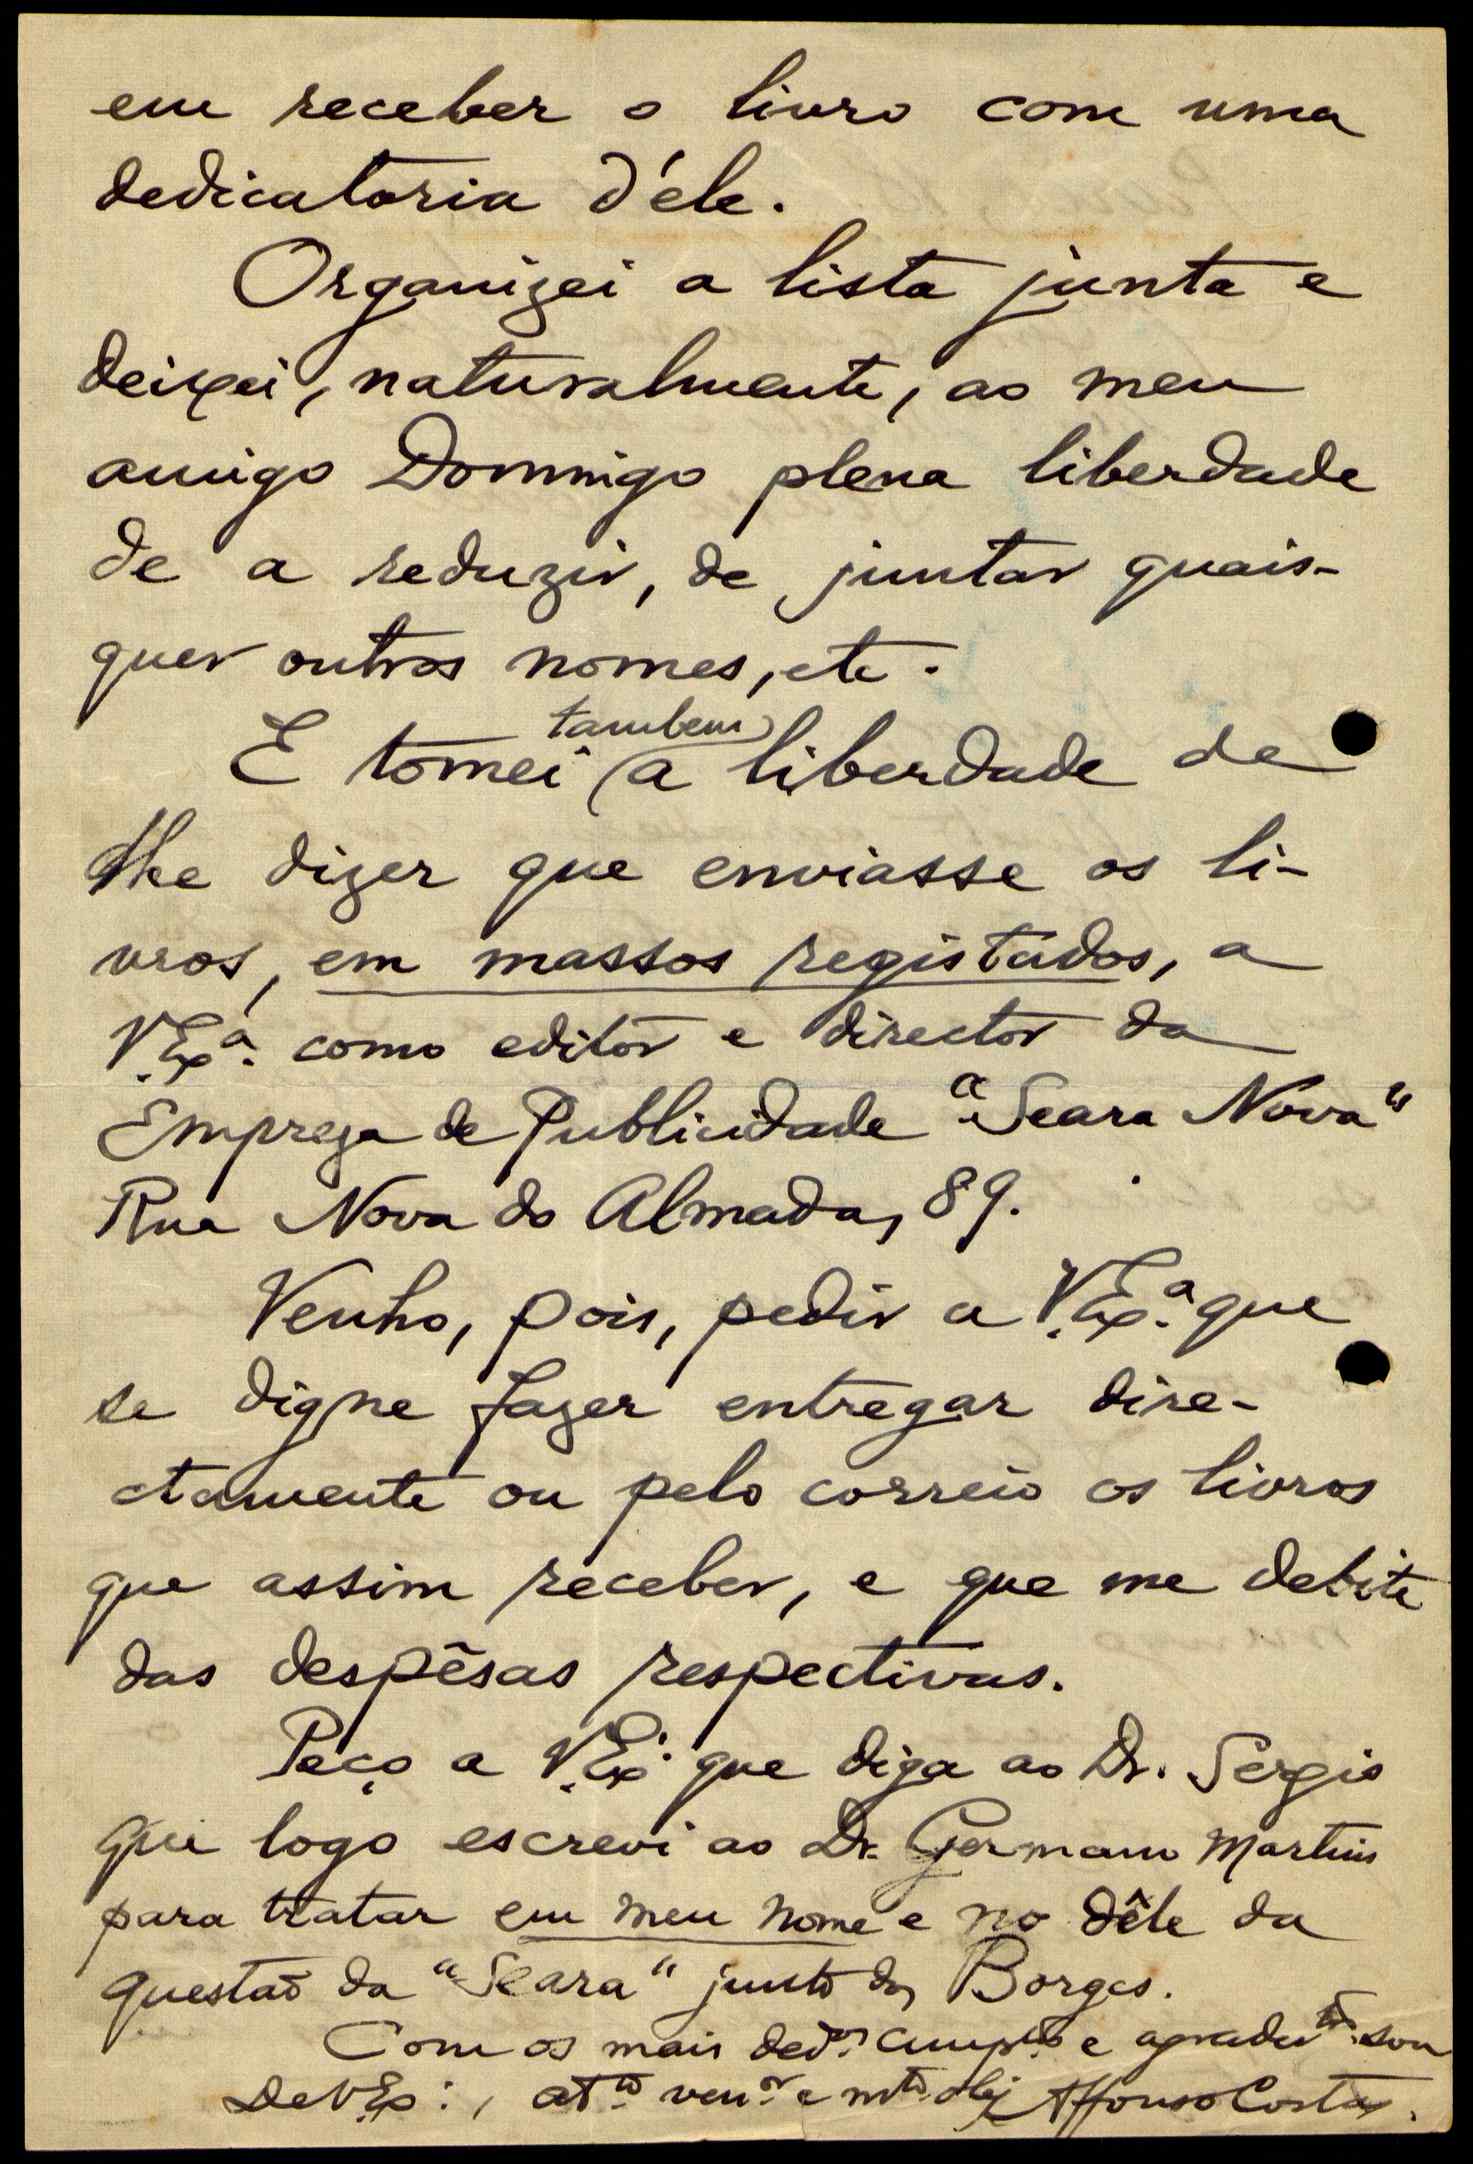 em receber o livro com uma
dedicatoria d'éle.
Organizei a lista junta e
deixei, naturalmente, ao meu
amigo Domingo plena liberdade
de a reduzir, de juntar quais-
quer outros nomes, etc.
E tomei também a liberdade de
lhe dizer que enviasse os li-
vros, em massos registados, a
V. Exª. como editor e director da
Empreza de Publicidade "Seara Nova"
Rua Nova do Almada, 89.
Venho, pois, pedir a V. Exª. que
se digne fazer entregar dire-
ctamente ou pelo correio os livros
que assim receber, e que me debite
das despêsas respectivas.
Peço a V. Exª. que diga ao Dr. Sergio
que logo escrevi ao Dr. Germano Martins
para tratar em meu nome e no dêle da
questão da "Seara" junto dos Borges.
Com os mais dedos. cumptos. e agradectos. sou
De V. Exª., atto. venor. e mto. obg Affonso Costa.